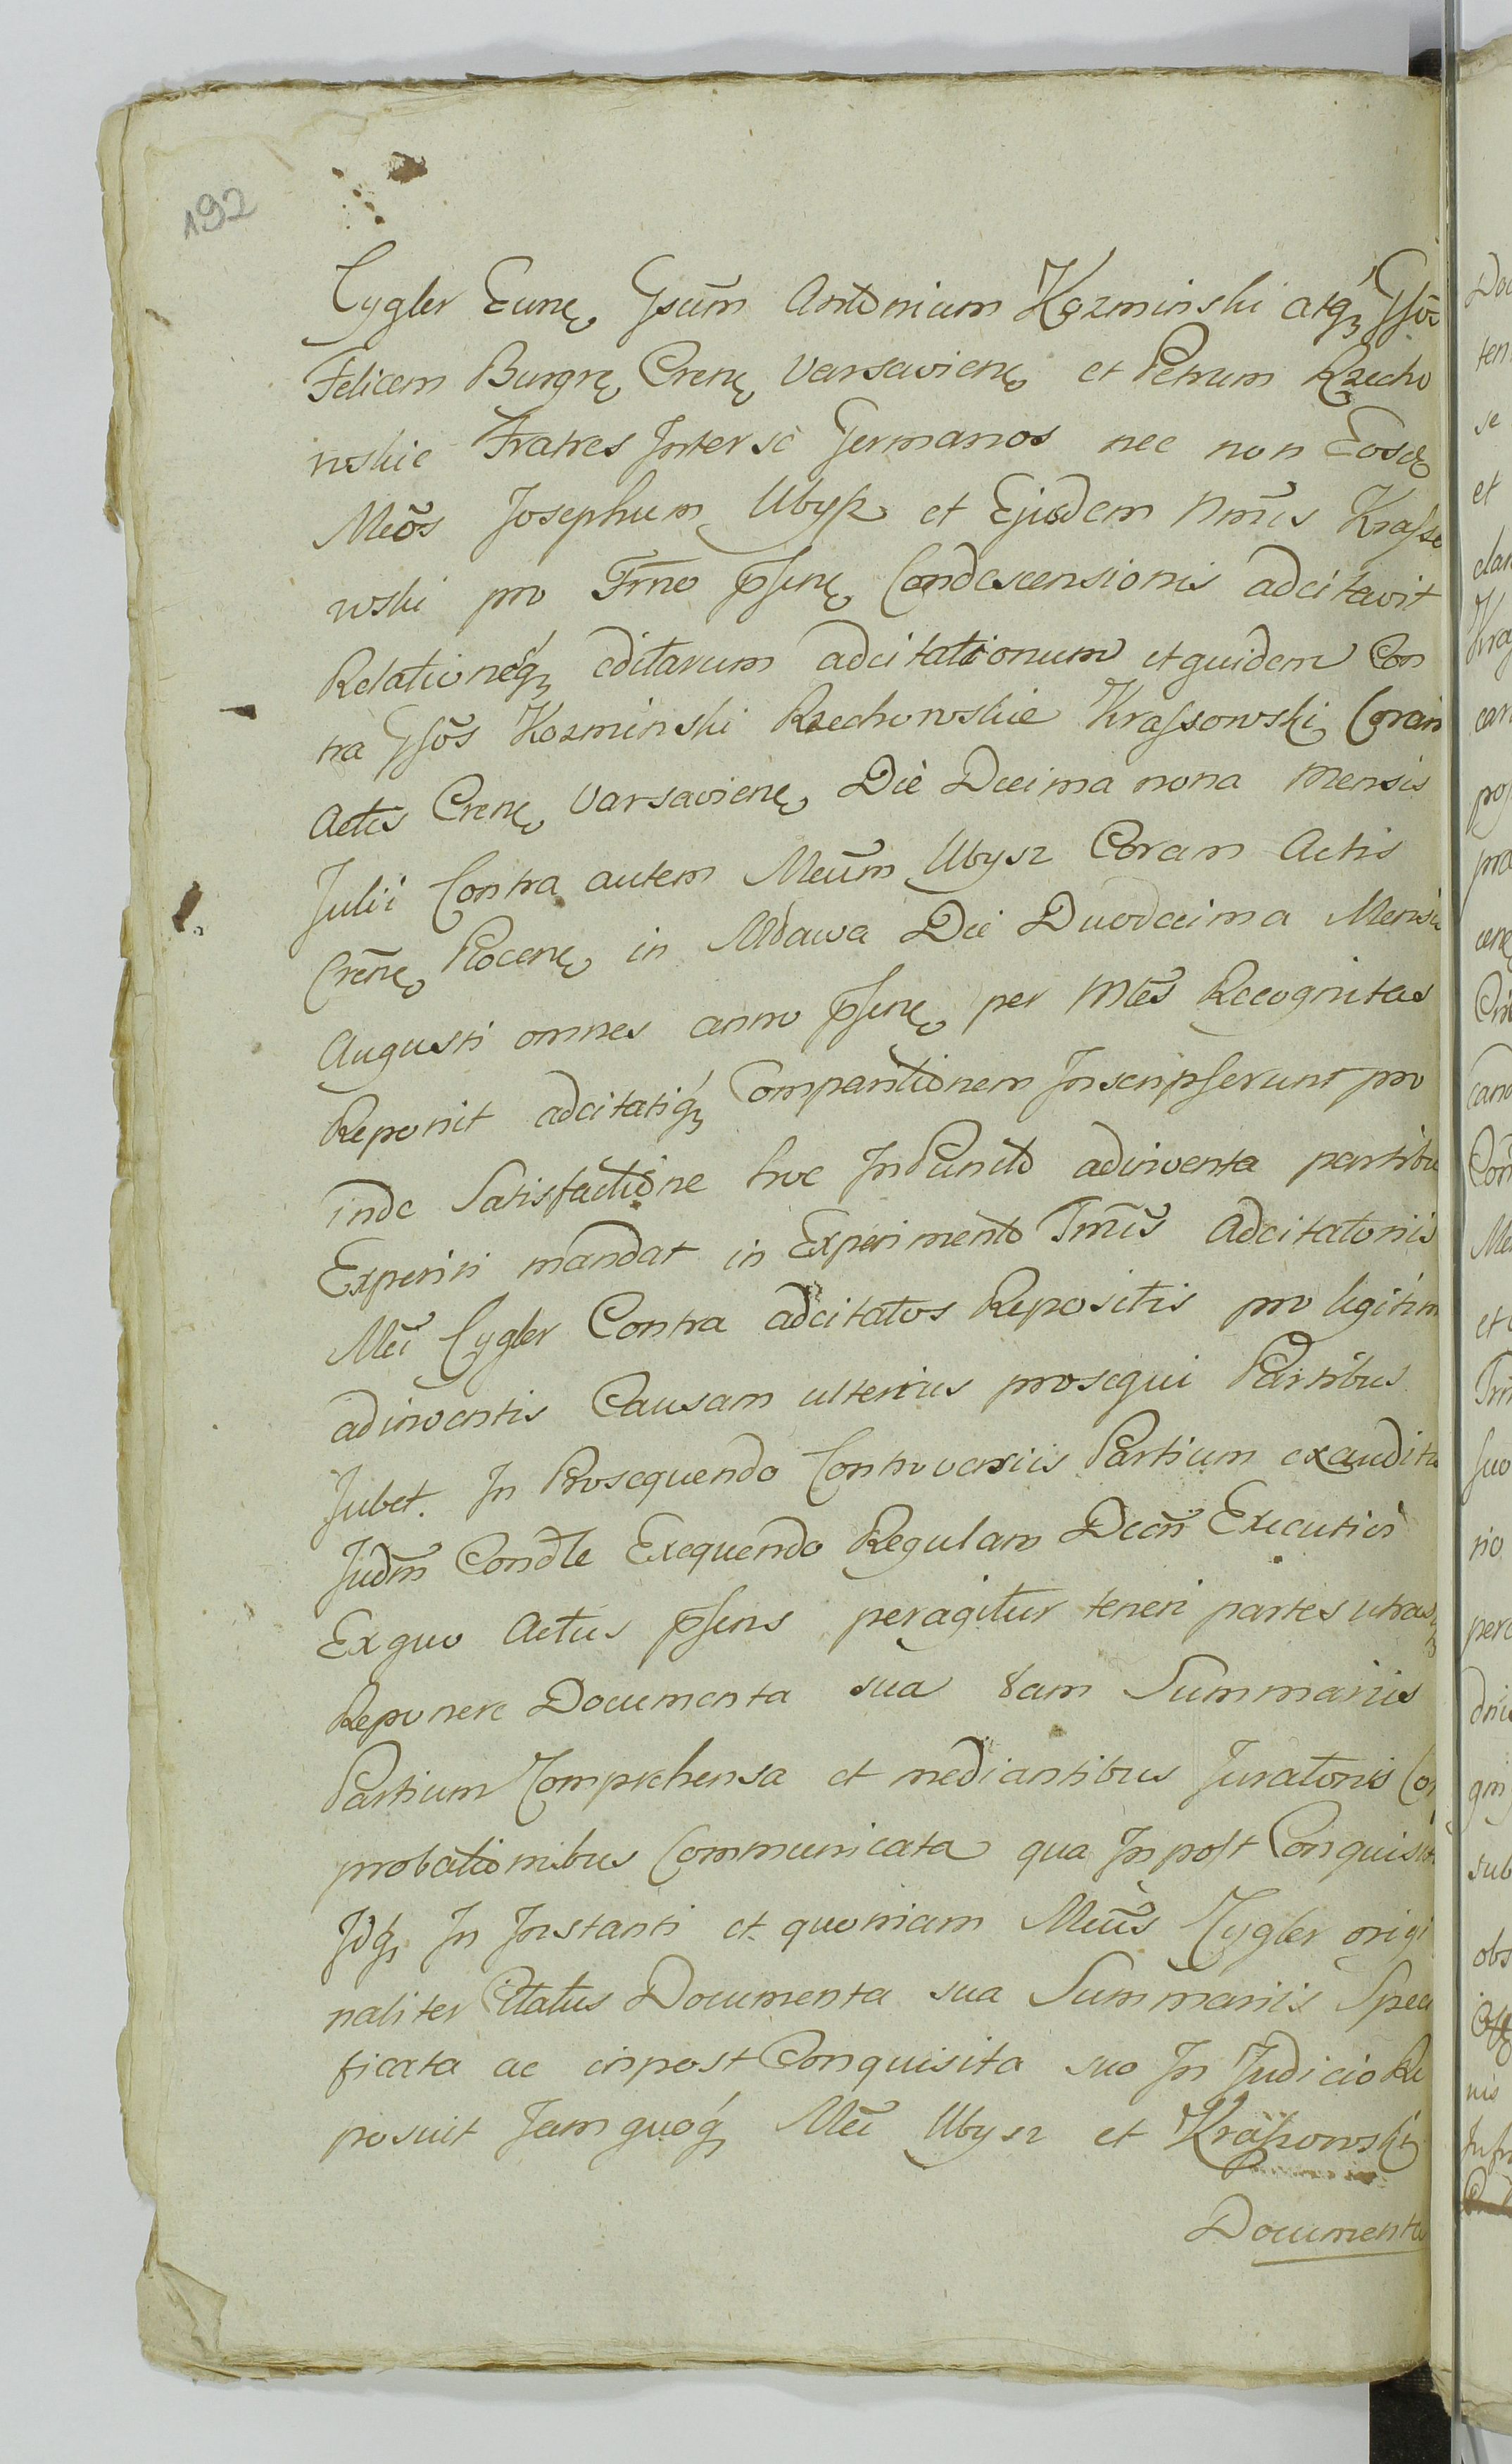 192
Cygler Eunę Gsum Antonium Kozminski atq Gsos
Felicem Burgrę Crenę Varsavienę et Petrum Rzecho
wskie Fratres Inter se Germanos nec non Eosdę
Meōs Josephum Ubysz et Ejusdem Nmis Krasso
wski pro Trno pſenę Condescensionis adcitavit
Relationeq editarum adcitationum et quidem Con
tra Gſōs Kozminski Rzechowskie Kraſsowski Coram
Actis Crenę Varsavienę Die Decima nona Mensis
Julii Contra autem Meum Ubysz Coram Actis
Crēnę Plocenę in Mława Die Duodecima Mensis
Augusti omnes anno pſenę per Mtēs Recognitas
Reponit adcitatiq Comparitionem Inscripſerunt pro
inde Satisfactione huc In Puncto adinventa partibu
Experiri mandat in Experimento Tmis Adcitatoriis
Mei Cygler Contra adcitatos Repositis pro legitim
adinventis Causam ulterius prosequi Partibus
Jubet. In Prosequendo Controversiis Partium exauditis
Judm Condle Exequendo Regulam Decti Executivi
Ex quo Actus pſens peragitur teneri partes utrasq
Reponere Documenta sua tam Summariis
Partium Comprehensa et mediantibus Juratoriis Com
probationibus Communicata qua In poſt Conquisita
Idq In Instanti et quoniam Meus Cygler origi
naliter Citatus Documenta sua Summariis Speci
ficata ac inpost Conquisita suo In Judicio Re
posuit Jam quoq Mei Ubysz et Kraſsowski
Documenta